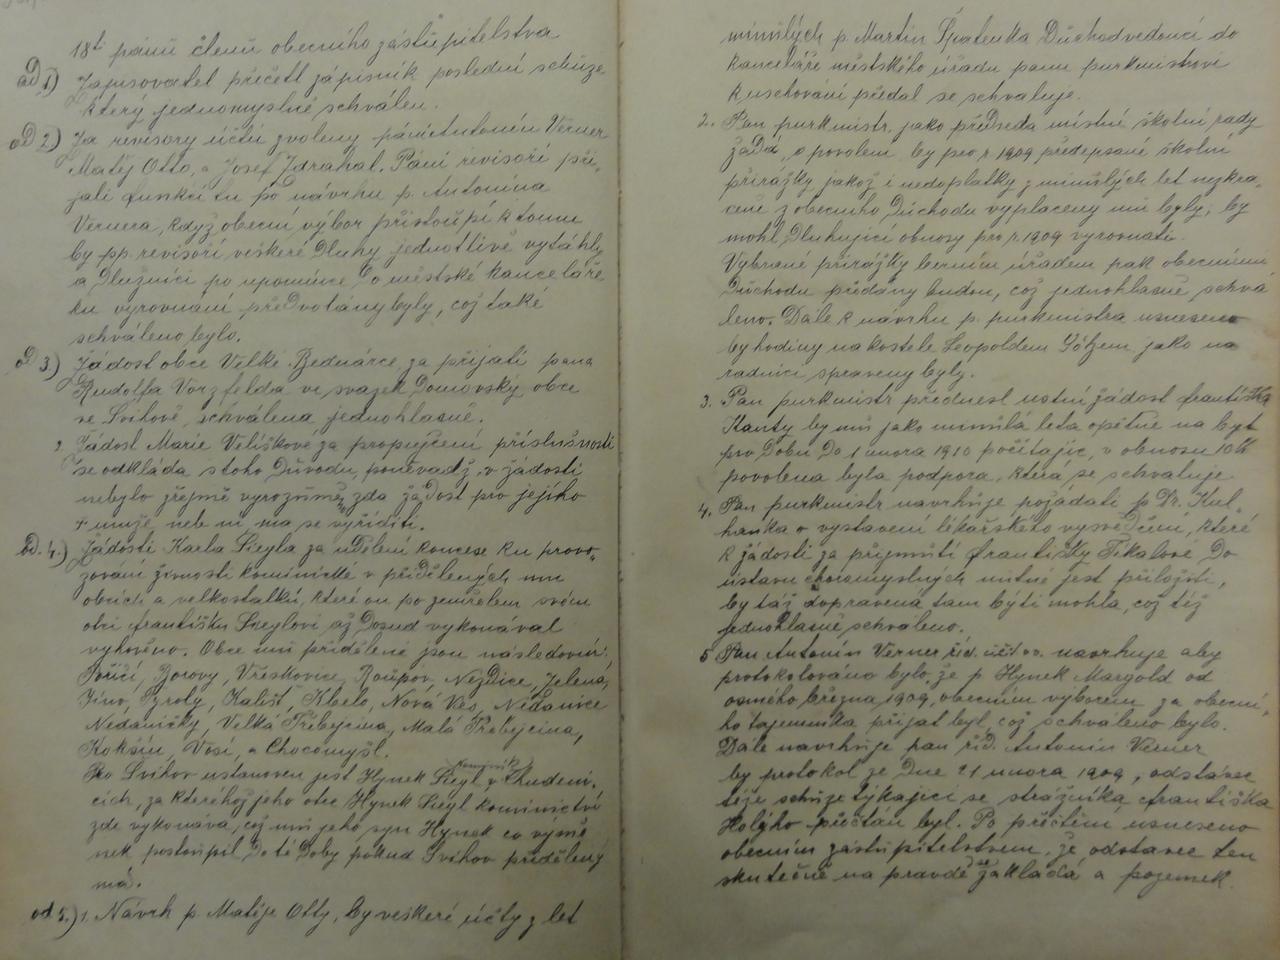 18ti pánů členů obecního zástupitelstva
ad 1) Zapisovatel přečetl zápisník poslední schůze
který jednomyslně schválen.
od 2) Za revisory účtů zvoleny pánové Antonín Verner
Matěj Otto, a Josef Zdrahal. Páni revisoři při-
jali funkci tu po návrhu p. Antonína
Vernera, když obecní výbor přistoupí k tomu
by pp. revisoři veškeré Dluhy jednotlivě vytáhly
a Dlužníci po upomínce Do městské kanceláře
ku vyrovnání předvoláni byly, což také
schváleno bylo.
od 3) Žádost obce Velké Bednárce za přijatí pana
Rudolfa Vorzfelda ve svazek Domovský obce
ve Švihově, schválena jednohlasně.
2. Žádost Marie Velíškové za propujčení příslušnosti
se odkládá z toho Důvodu, poněvadž v žádosti
nebylo zřejmě vyrozuměno zda žádost pro jejího
muže, neb ni ma se vyříditi.
od. 4.) Žádosti Karla Siegla za udělení koncese ku provo-
zování živnosti kominické v přidělených mu
obcích a velkostatků, které on po zemřelém svém
otci Františku Sieglovi až Dosud vykonával
vyhověno. Obce mu přidělené jsou následovní:
Poříčí, Borovy, Vřeskovice, Roupov, Nezdice, Jelená,
Jíno, Broty, Kaliště, Kbelo, Nová Ves, Nedanice
Nedaničky, Velká Třebejcina, Malá Třebejcina,
Kokšín, Vosí, a Chocomyšl.
Pro Švihov ustanoven jest Hynek Siegl kominík v Chudeni-
cích, za kteréhož jeho otec Hynek Siegl kominictví
zde vykonává, což mu jeho syn Hynek co výmě
nek postoupil Do té Doby pokud Švihov přidělený
má.
od 5.) 1. Návrh p. Matěje Otty, by veškeré účty z let
minulých p. Martin Špatenka Důchodvedoucí do
kanceláře městského úřadu panu purkmistrovi
k uschování předal se schvaluje.
2. Pan purkmistr jako předseda místní školní rady
žádá, o povolení by pro r. 1909 předepsané školní
přirážky jakož i nedoplatky z minulých let nezkrá
ceně z obecního Důchodu vyplaceny mu byly, by
mohl Dluhující obnosy pro r. 1909 vyrovnati.
Vybrané přirážky berním úřadem pak obecnímu
Důchodu předány budou, což jednohlasně schvá
leno. Dále k návrhu p. purkmistra usneseno
by hodiny na kostele Leopoldem Götzem jako na
radnici spraveny byly.
3. Pan purkmistr přednesl ustní žádost Františka
Kanty by mu jako minulá leta opětně na byt
pro Dobu Do 1 února 1910 počítajíc, v obnosu 10 K
povolena byla podpora, která se schvaluje.
4. Pan purkmistr navrhuje požádati p. Dr. Kul-
hanka o vystavení lékařského vysvědčení, které
k žádosti za přijmutí Františky Tikalové Do
ústavu choromyslných nutné jest přiložiti,
by táž dopravena tam býti mohla, což též
jednohlasně schváleno.
5 Pan Antonín Verner říd. učit. navrhuje aby
protokolováno bylo, že p Hynek Margold od
osmého března 1909, obecním výborem za obecní-
ho tajemníka přijat byl, což schváleno bylo.
Dále navrhuje pan říd. Antonín Verner
by protokol ze Dne 21 února 1909, odstavec
téže schůze týkající se strážníka Františka
Holýho přečtán byl. Po přečtení usneseno
obecním zástupitelstvem, že odstavec ten
skutečně na pravdě se zakládá a pozemek.